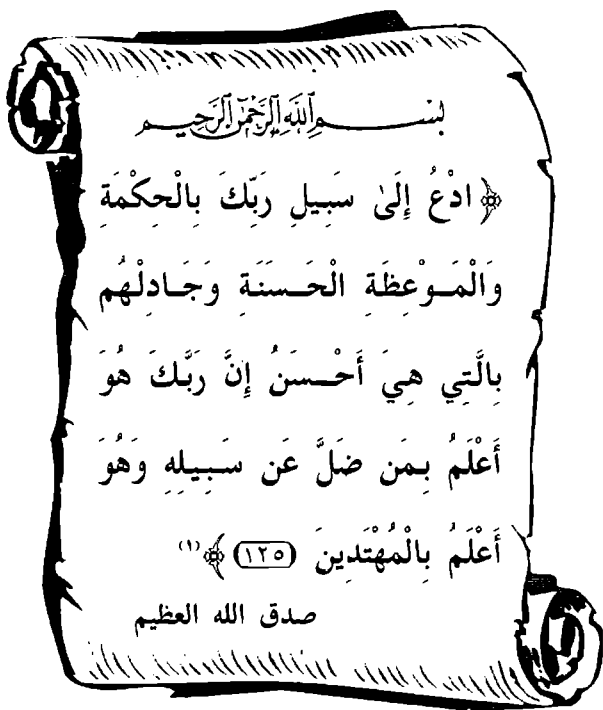 بسم الله الرحمن الرحيم
﴿ ادْعُ إِلَىٰ سَبِيلِ رَبِّكَ بِالْحِكْمَةِ
وَالْمَوْعِظَةِ الْحَسَنَةِ وَجَادِلْهُم
بِالَّتِي هِيَ أَحْسَنُ إِنَّ رَبَّكَ هُوَ
أَعْلَمُ بِمَن ضَلَّ عَن سَبِيلِهِ وَهُوَ
أَعْلَمُ بِالْمُهْتَدِينَ (١٢٥) ﴾ (١)
صدق الله العظيم